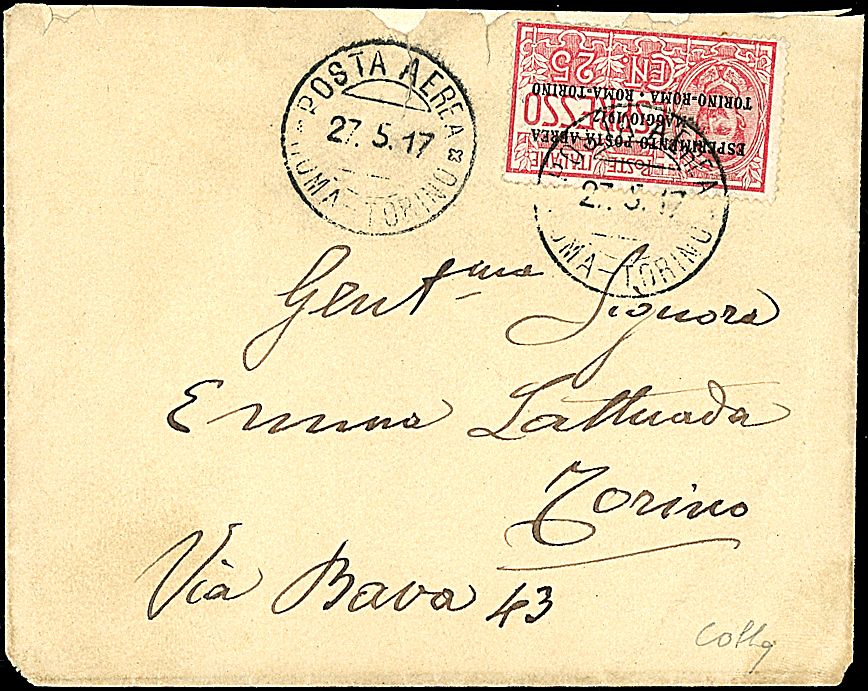 POSTA AEREA
27.5.17
ROMA-TORINO
POSTE ITALIANE
ESPRESSO
CEN. 25
ESPERIMENTO POSTA AEREA
MAGGIO 1917
TORINO-ROMA • ROMA-TORINO
AEREA
27.5.17
ROMA-TORINO
Gent.ma Signora
Emma Lattuada
Torino
Via Bava 43